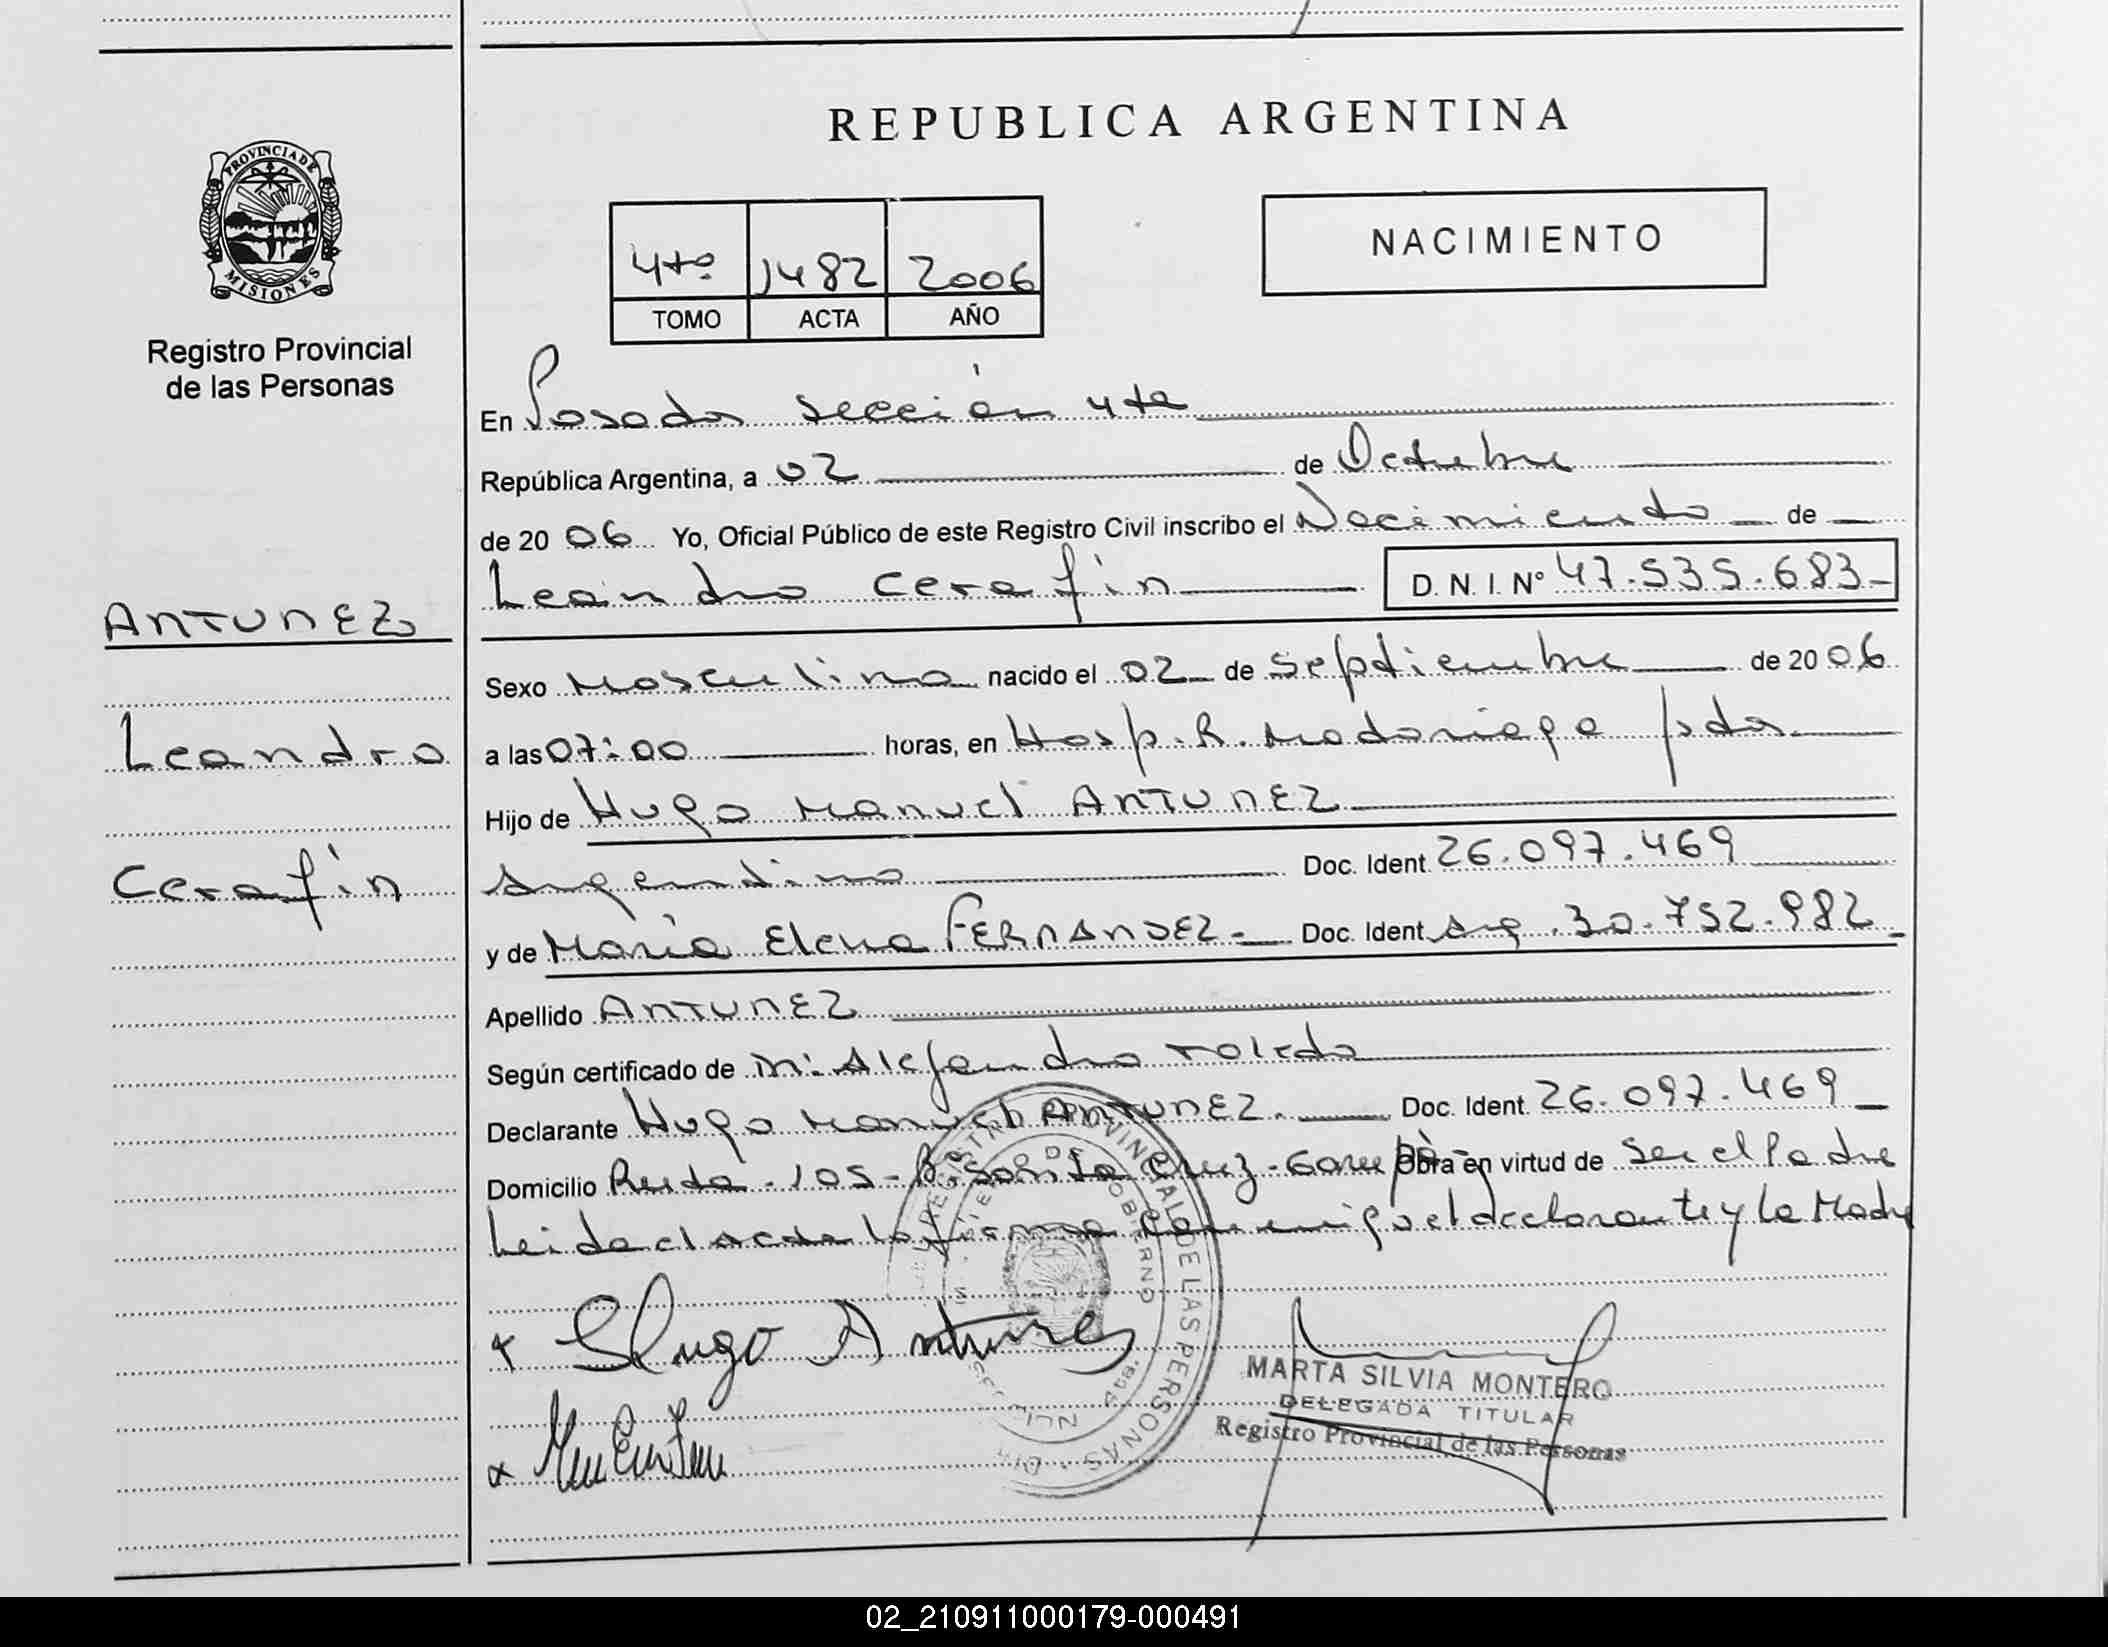 REPUBLICA ARGENTINA
PROVINCIA DE
MISIONES
Registro Provincial
de las Personas
4to 1482 2006
TOMO ACTA AÑO
NACIMIENTO
En Posadas sección 4ta
República Argentina, a 02 de Octubre
de 2006 Yo, Oficial Público de este Registro Civil inscribo el Nacimiento de
Leandro Cerafín D. N. I. Nº 47.535.683
ANTUNEZ
Leandro
Cerafín
Sexo Masculino nacido el 02 de Septiembre de 2006
a las 07:00 horas, en Hosp. R. Madariaga Pdas.
Hijo de Hugo Manuel ANTUNEZ
Argentino Doc. Ident. 26.097.469
y de María Elena FERNANDEZ. Doc. Ident. Arg. 30.752.982
Apellido ANTUNEZ
Según certificado de M: Alejandro Toledo
Declarante Hugo Manuel ANTUNEZ. Doc. Ident. 26.097.469
Domicilio Ruta 105 - Bº Santa Cruz - Garupá Obra en virtud de ser el Padre
Leida el acta la firman conmigo el declarante y la Madre
x Hugo Antunez
x
REGISTRO PROVINCIAL DE LAS PERSONAS
DE GOBIERNO
4ta.
MARTA SILVIA MONTERO
DELEGADA TITULAR
Registro Provincial de las Personas
02_210911000179-000491